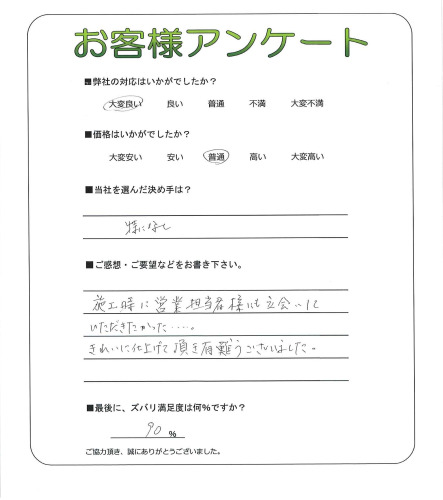 お客様アンケート
■弊社の対応はいかがでしたか？
大変良い 良い 普通 不満 大変不満
■価格はいかがでしたか？
大変安い 安い 普通 高い 大変高い
■当社を選んだ決め手は？
特になし
■ご感想・ご要望などをお書き下さい。
施工時に営業担当者様にも立会いして
いただきたかった……。
きれいに仕上げて頂き有難うございました。
■最後に、ズバリ満足度は何％ですか？
90 %
ご協力頂き、誠にありがとうございました。